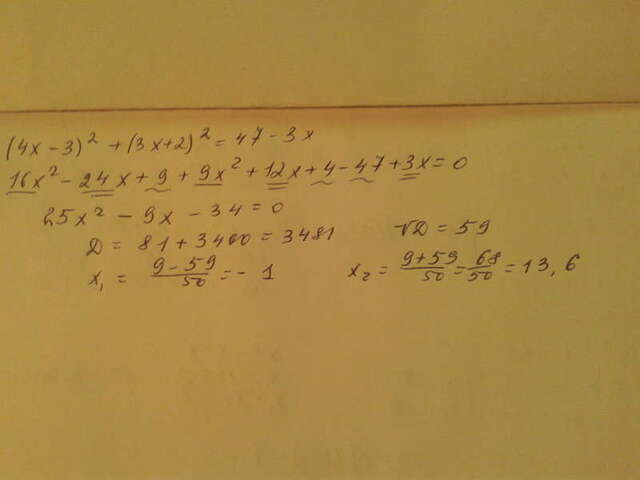 (4x-3)² + (3x+2)² = 47 - 3x
16x² - 24x + 9 + 9x² + 12x + 4 - 47 + 3x = 0
25x² - 9x - 34 = 0
D = 81 + 3400 = 3481 √D = 59
x₁ = (9-59)/50 = -1 x₂ = (9+59)/50 = 68/50 = 13,6